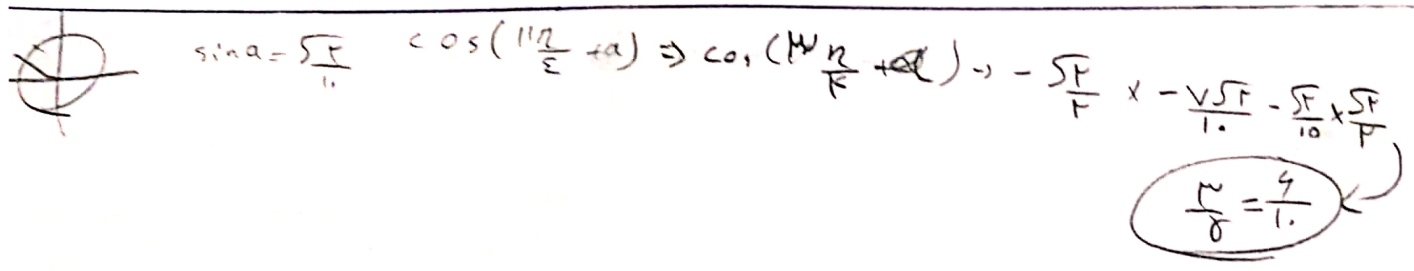 sin a = √۲/۱۰ cos(۱۱π/٤ + a) ⇒ cos(۳π/۴ + a) → -√۲/۲ × -۷√۲/۱۰ - √۲/10 × √۲/۲
۳/۵ = ۶/۱۰